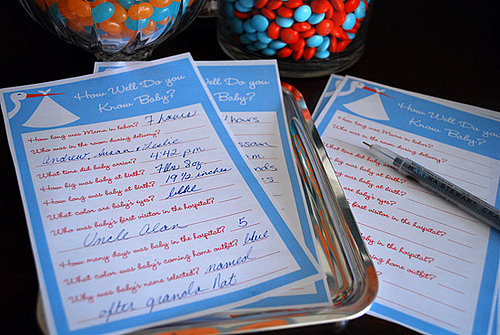 How Well Do you
Know Baby?
How long was Mama in labor? 7 hours
Who was in the room during delivery?
Andrew, Susan + Julie
What time did baby arrive? 4:42 pm
How big was baby at birth? 7lbs 8oz
How long was baby at birth? 19½ inches
What color are baby's eyes? blue
Who was baby's first visitor in the hospital?
Uncle Alan
How many days was baby in the hospital? 5
What color was baby's coming home outfit? blue
Why was baby's name selected? named
after grandpa Nat
How Well Do you
Know Baby?
hours
m.
How Well Do you
Know Baby?
How long was Mama in labor?
Who was in the room during delivery?
What time did baby arrive?
was baby at birth?
baby's eyes?
first visitor in the hospital?
baby in the hospital?
coming home outfit?
selected?